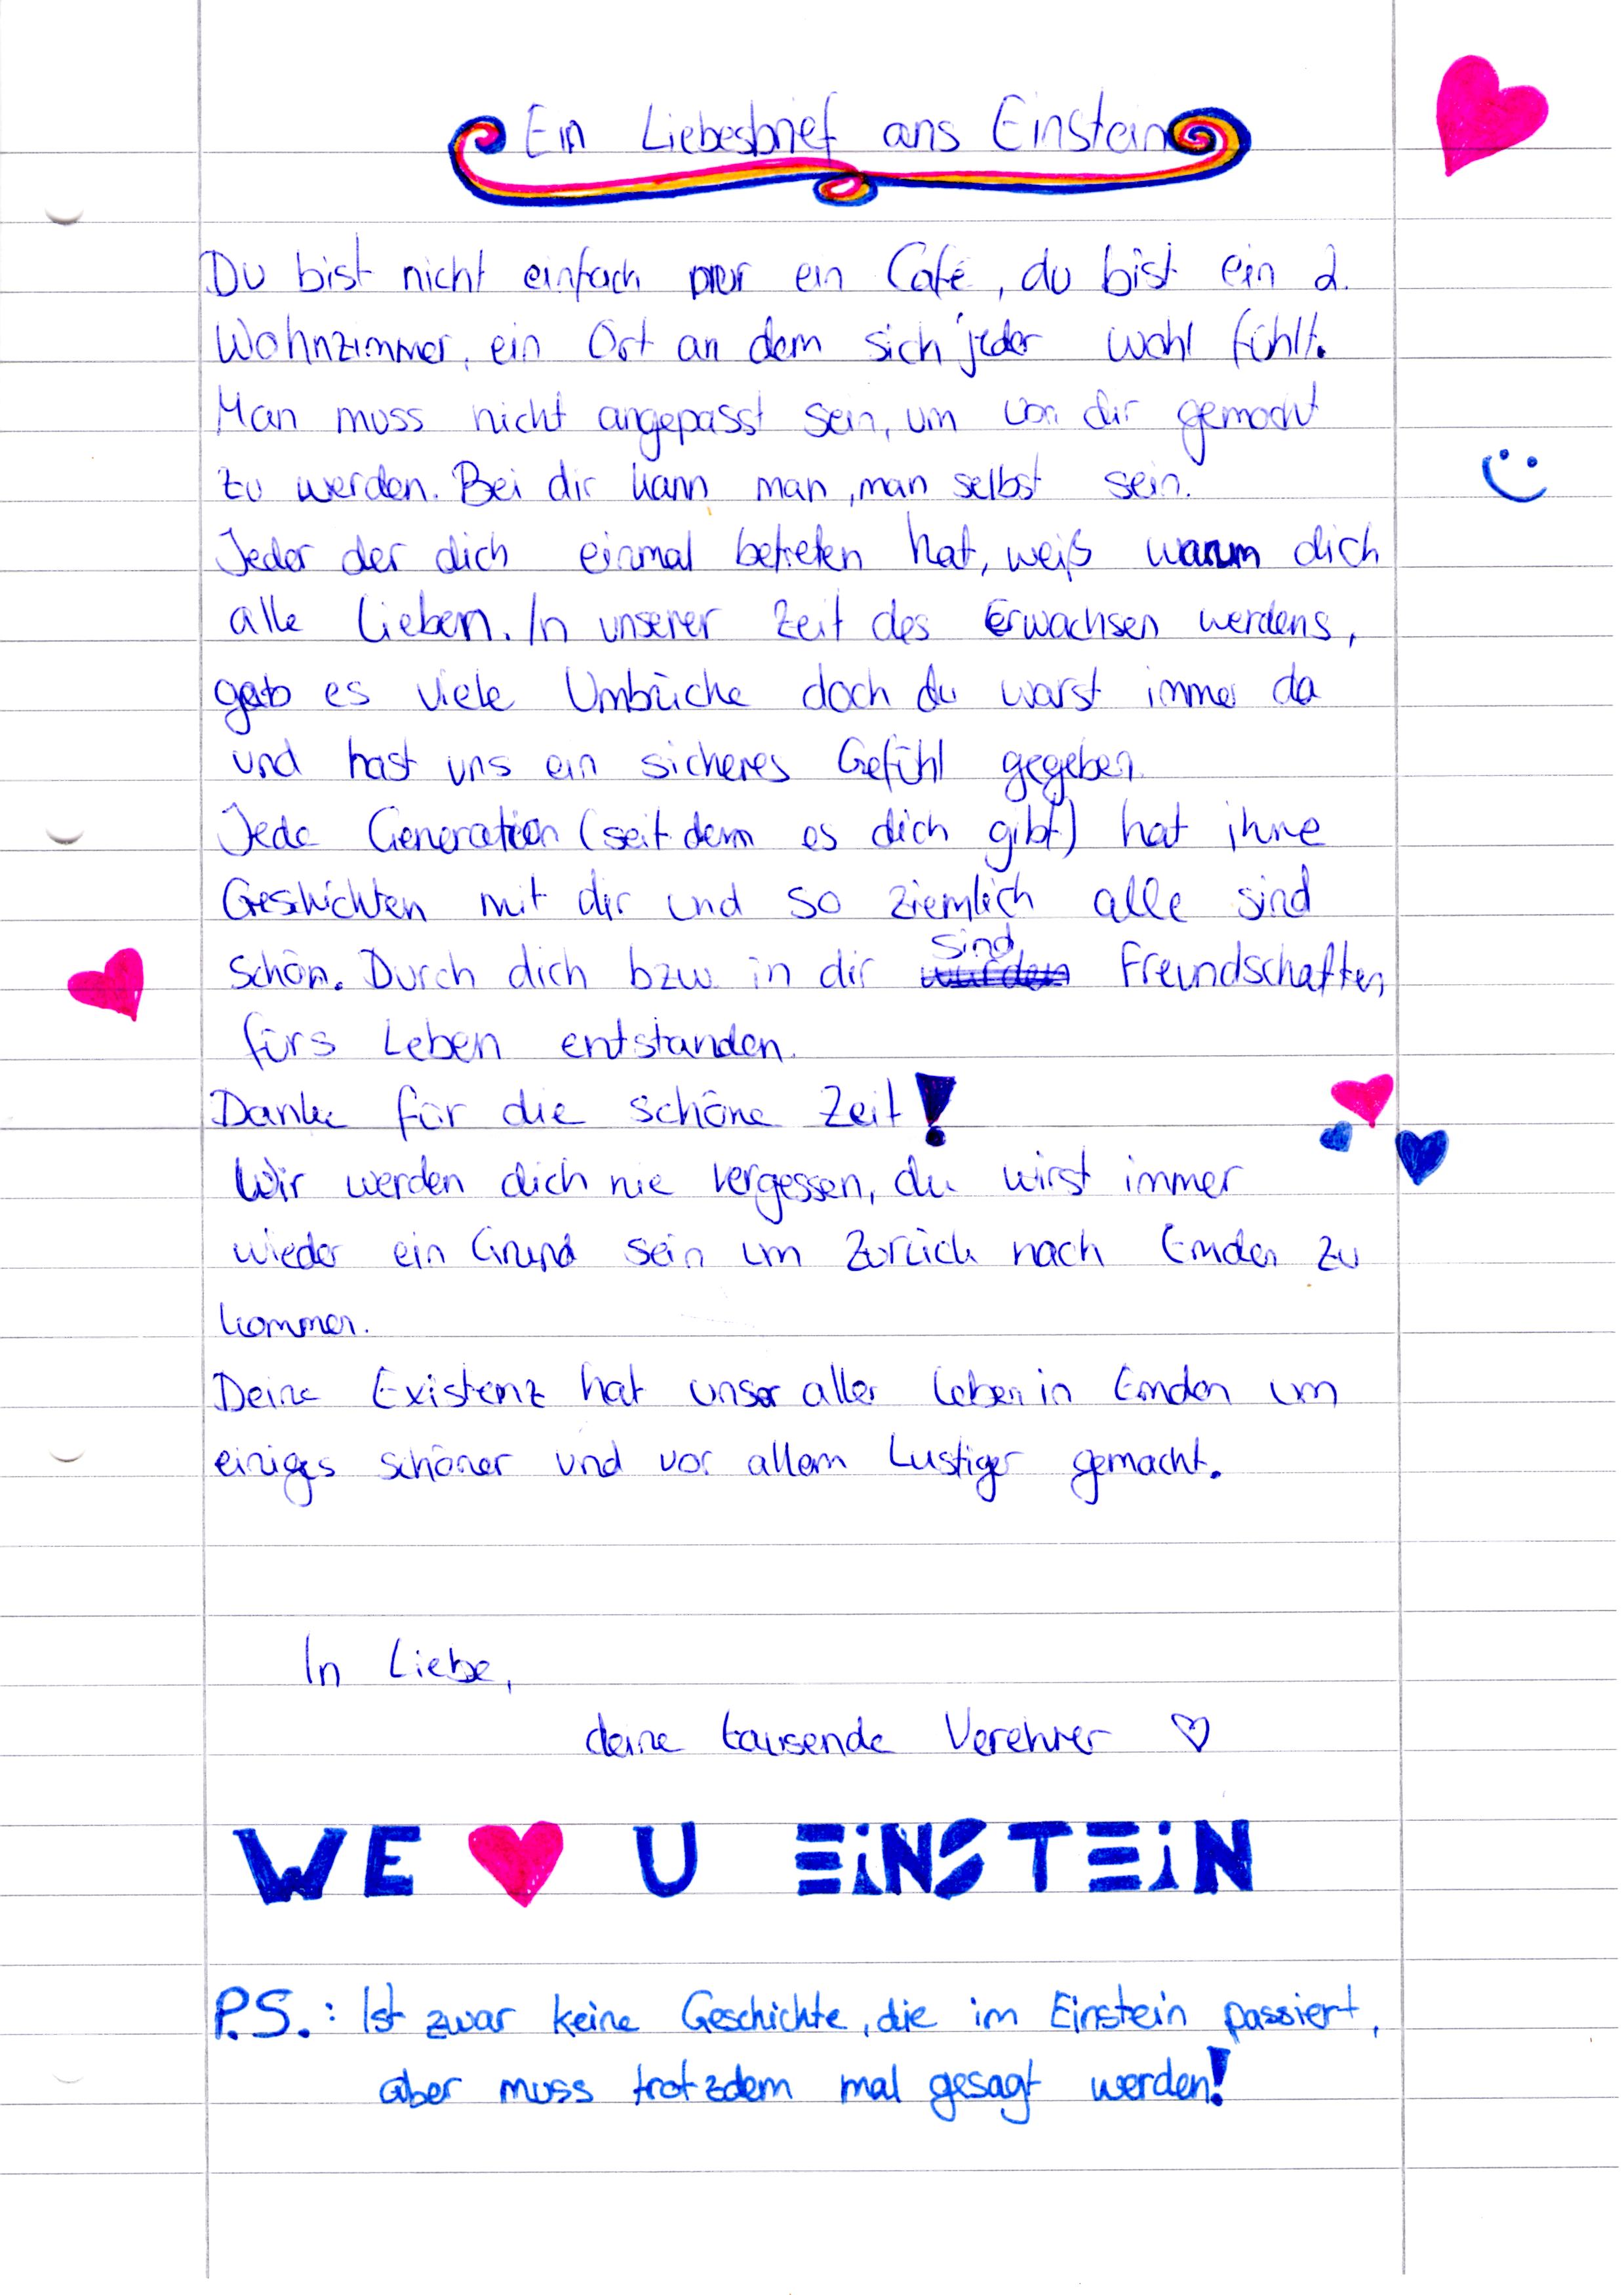 Ein Liebesbrief ans Einstein
Du bist nicht einfach nur ein Café, du bist ein 2.
Wohnzimmer, ein Ort an dem sich jeder wohl fühlt.
Man muss nicht angepasst sein, um von dir gemocht
zu werden. Bei dir kann man, man selbst sein.
Jeder der dich einmal betreten hat, weiß warum dich
alle Lieben. In unserer Zeit des Erwachsen werdens,
gab es viele Umbrüche doch du warst immer da
und hast uns ein sicheres Gefühl gegeben.
Jede Generation (seit dem es dich gibt) hat ihre
Geschichten mit dir und so ziemlich alle sind
schön. Durch dich bzw. in dir sind Freundschaften
fürs Leben entstanden.
Danke für die schöne Zeit!
Wir werden dich nie vergessen, du wirst immer
wieder ein Grund sein um Zurück nach Emden zu
kommen.
Deine Existenz hat unser aller Leben in Emden um
einiges schöner und vor allem Lustiger gemacht.
In Liebe,
deine tausende Verehrer ♡
WE ♥ U EiNSTEiN
P.S.: Ist zwar keine Geschichte, die im Einstein passiert,
aber muss trotzdem mal gesagt werden!